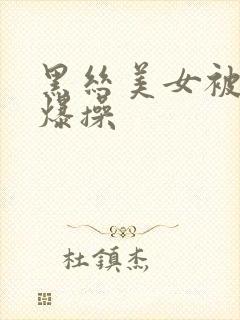 黑丝美女被
爆操
杜鎮杰